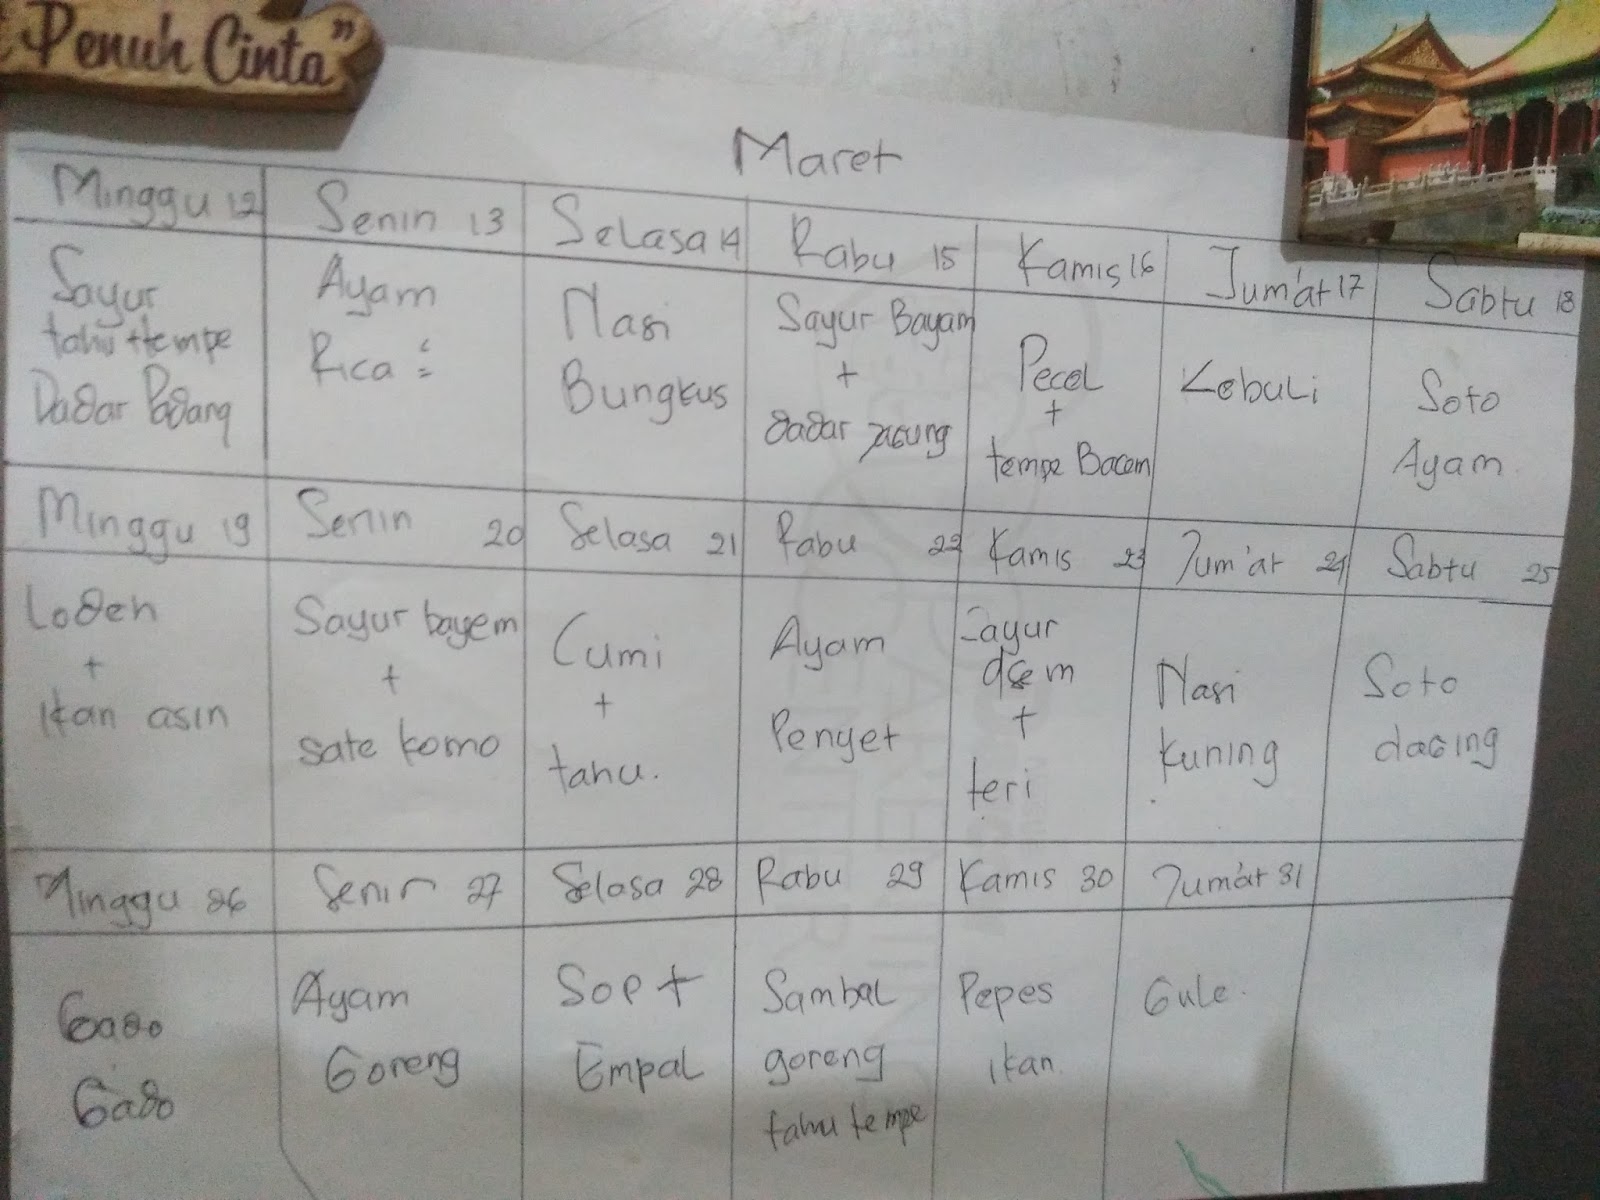 Penuh Cinta"
Maret
Minggu 12 Senin 13 Selasa 14 Rabu 15 Kamis 16 Jum'at 17 Sabtu 18
Sayur
tahu+tempe
Dadar Padang
Ayam
Rica :
Nasi
Bungkus
Sayur Bayam
+
dadar jagung
Pecel
+
tempe Bacem
Kebuli
Soto
Ayam
Minggu 19 Senin 20 Selasa 21 Rabu 22 Kamis 23 Jum'at 24 Sabtu 25
Lodeh
+
ikan asin
Sayur bayem
+
sate komo
Cumi
+
tahu.
Ayam
Penyet
Sayur
+
teri
Nasi
kuning
Soto
daging
Minggu 26 Senin 27 Selasa 28 Rabu 29 Kamis 30 Jum'at 31
Gado
Gado
Ayam
Goreng
Sop +
Empal
Sambal
goreng
tahu tempe
Pepes
ikan.
Gule.